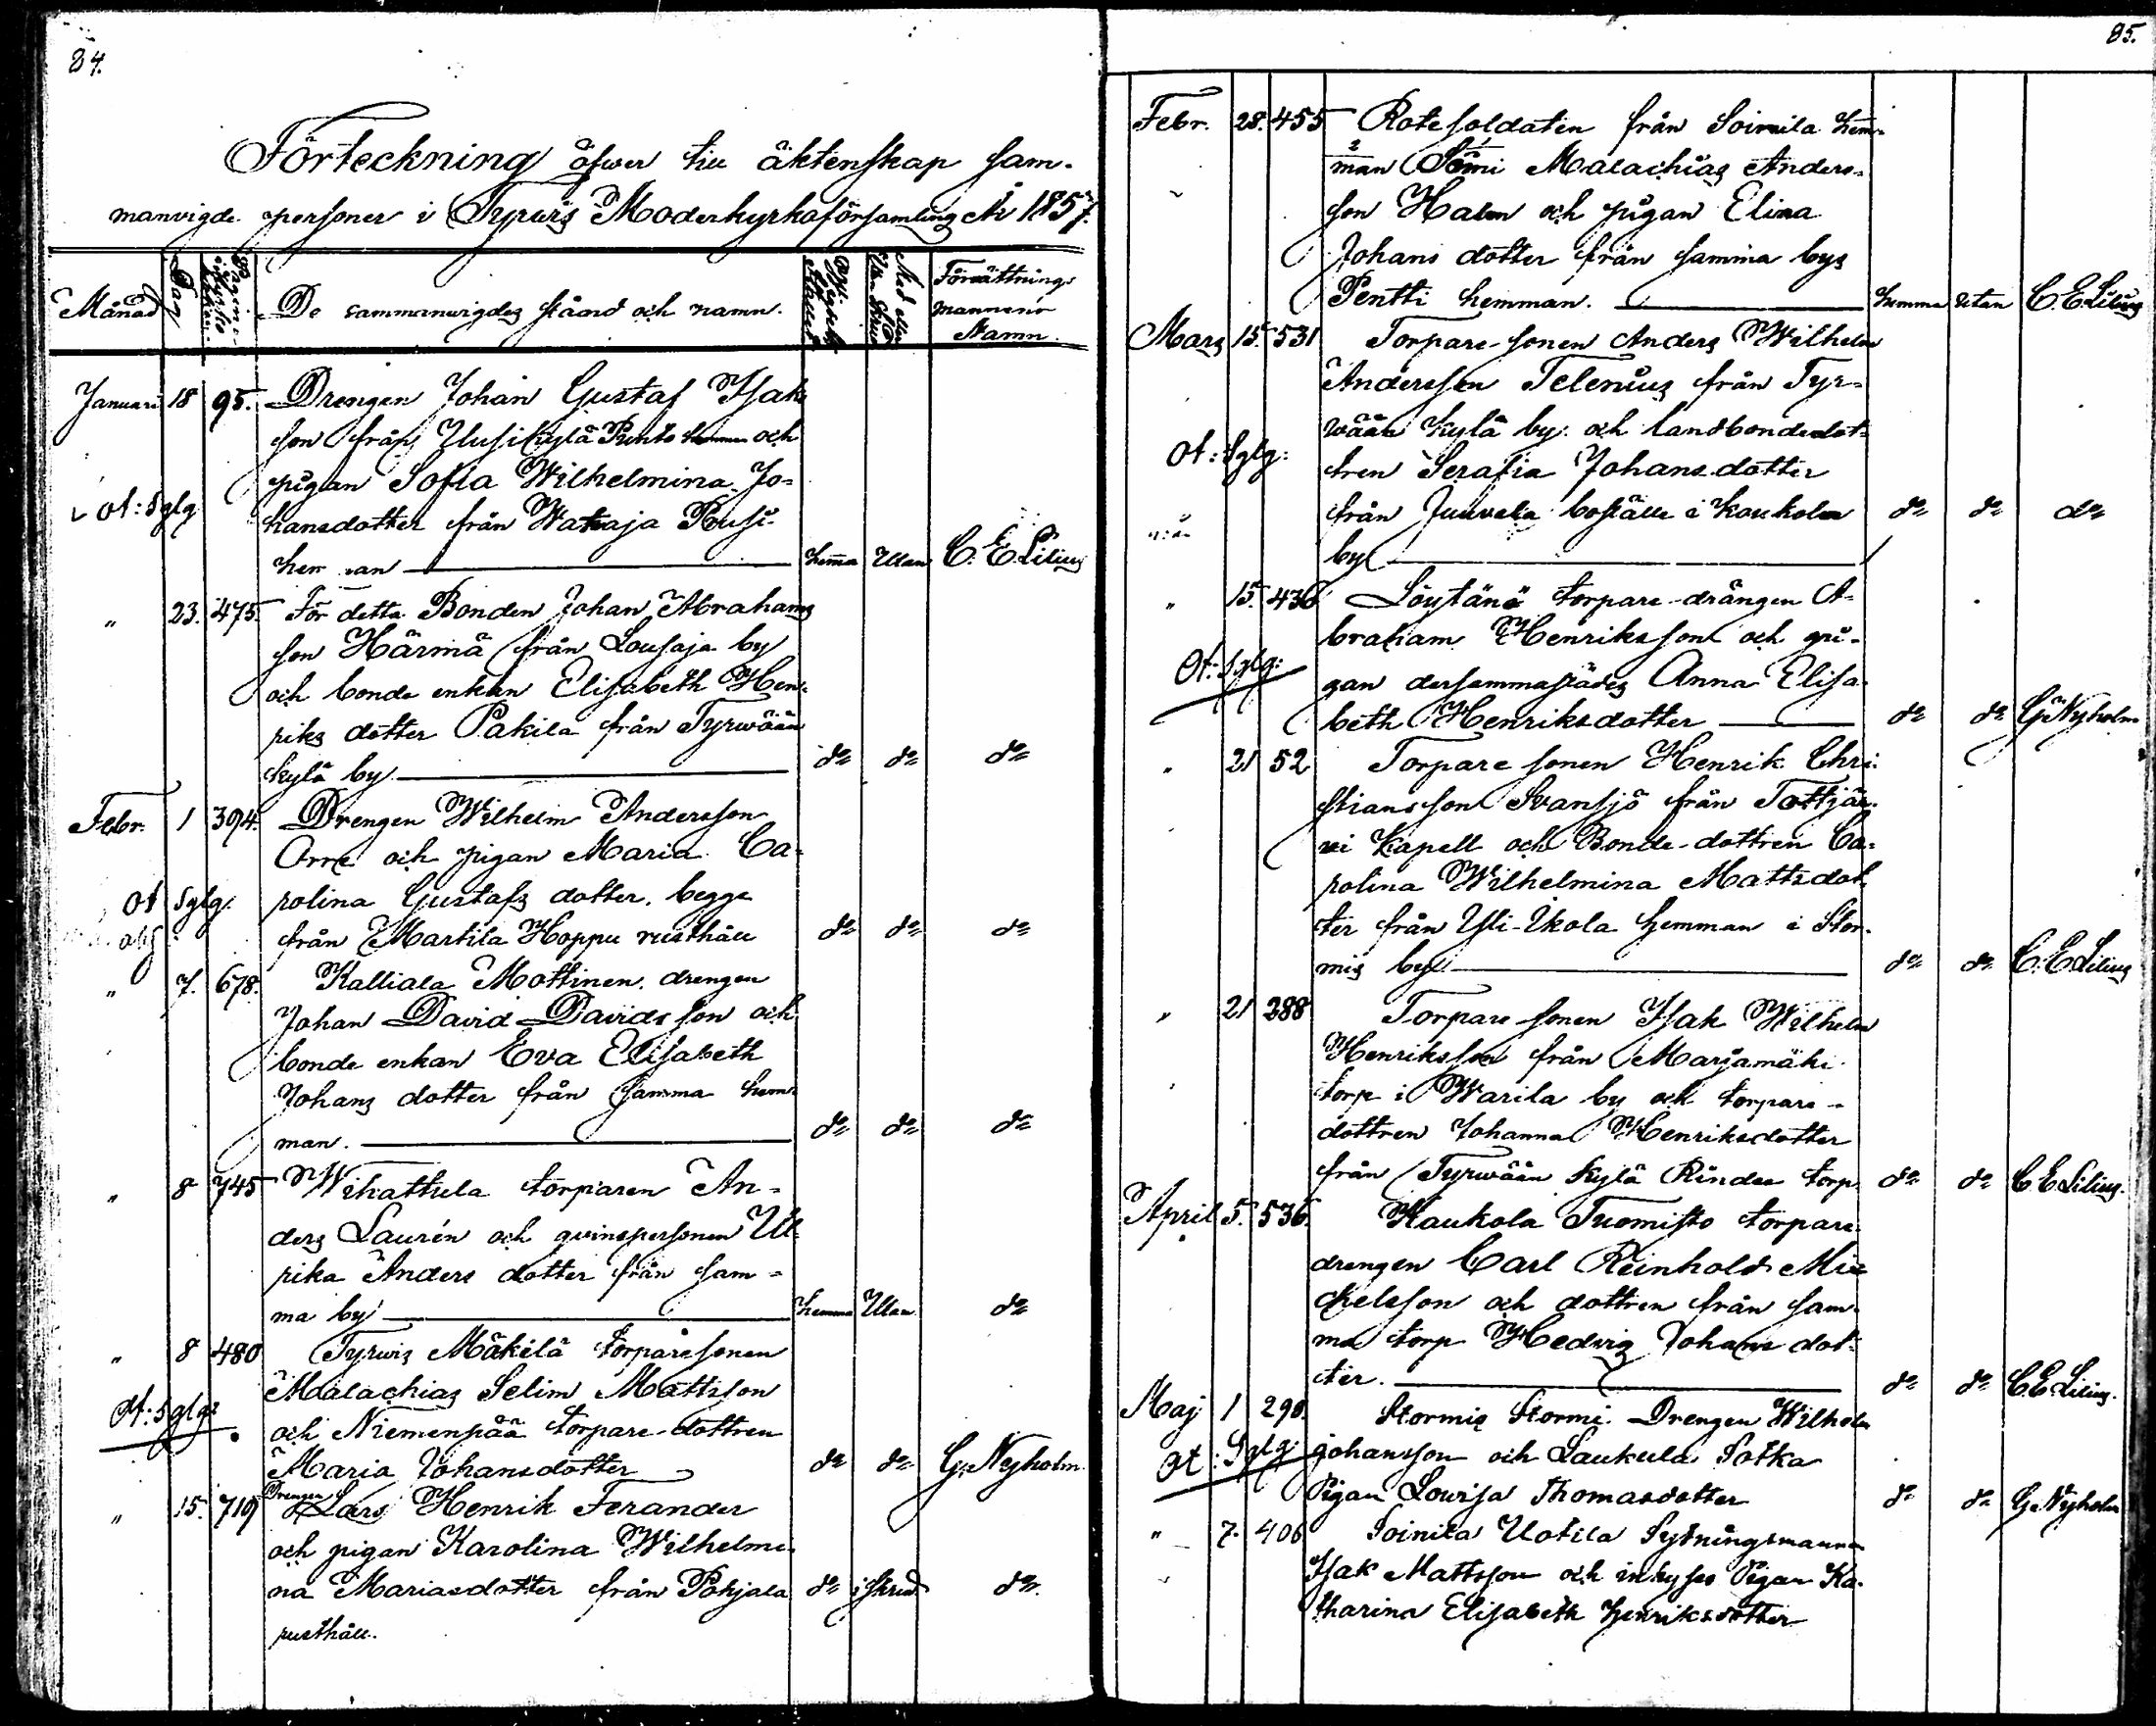 84.
Förteckning öfwer till äktenskap sam-
manvigde personer i Tyrwis Moderkyrkoförsamling År 1857.
Månad Dag De sammanwigdes stånd och namn. Förrättnings
mannens
Namn.
Januari 18 95. Drengen Johan Gustaf Isaks
son från Uusikylä Punto hemman och
pigan Sofia Wilhelmina Jo-
ot: Sglg hansdotter från Wataja Rusi
hem an hemma Utan C. E. Lilius
" 23. 475. För detta Bonden Johan Abrahams
son Härmä från Lousaja by
och bonde enkan Elisabeth Hen-
riks dotter Pakila från Tyrwään
kylä by do do do
Febr. 1 394. Drengen Wilhelm Andersson
Orre och pigan Maria Ca-
ot Sglg. rolina Gustafs dotter, begge
från Martila Hoppu rusthåll do do do
" 7. 678. Kalliala Mottinen drengen
Johan David Davidsson och
bonde enkan Eva Elisabeth
Johans dotter från samma hem-
man. do do do
" 8 745 Wihattula torparen An-
ders Laurén och qvinspersonen Ul-
rika Anders dotter från sam-
ma by hemma Utan do
" 8 480 Tyrwis Mäkilä torparesonen
Malachias Selim Mattsson
ot: Sglg: och Niemenpää torpare-dottren
Maria Johansdotter do do G. Nyholm.
" 15. 719 Drengen Lars Henrik Ferander
och pigan Karolina Wilhelmi-
na Mariasdotter från Pohjala do i skrud do
rusthåll.
85.
Febr. 28. 455 Rotesoldaten från Soinila hem-
man Sömi Malachias Anders-
son Halm och pigan Elina
Johans dotter från samma bys
Pentti hemman. hemma utan C. E. Lilius
Mars 15. 531 Torpare-sonen Anders Wilhelm
Andersson Telenius från Tyr-
wään kylä by och landbondedot-
ot: Sglg: tren Serafia Johans-dotter
från Junvela boställe i Kaukola do do do
by
" 15. 436 Löytänä torpare-drängen A-
braham Henriksson och pi-
ot: Sglg: gan dersammastädes Anna Elisa-
beth Henriksdotter do do G. Nyholm
" 21 52 Torpare sonen Henrik Chri-
stiansson Svansjö från Tottjär-
vi Kapell och Bonde-dottren Ca-
rolina Wilhelmina Mattsdot-
ter från Yli-Ikola hemman i Stor-
mis by do do C. E. Lilius
" 21 288 Torpare sonen Isak Wilhelm
Henriksson från Marjamäki
torp i Warila by och torpare-
dottren Johanna Henriksdotter
från Tyrwään kylä Rindee torp. do do C E Lilius.
April 5. 536. Kaukola Tuomisto torpare
drengen Carl Reinhold Mic
kelsson och dottren från sam-
ma torp Hedvig Johans dot-
ter. do do C E Lilius.
Maj 1 290. Stormis Stormi Drengen Wilhelm
ot: Sglg: Johansson och Laukula Sotka
Pigan Lowisa Thomasdotter do do G Nyholm
" 7. 406 Soinila Uotila Sytningsmannen
Isak Mattsson och inhyses Pigan Ka-
tharina Elisabeth Henriksdotter